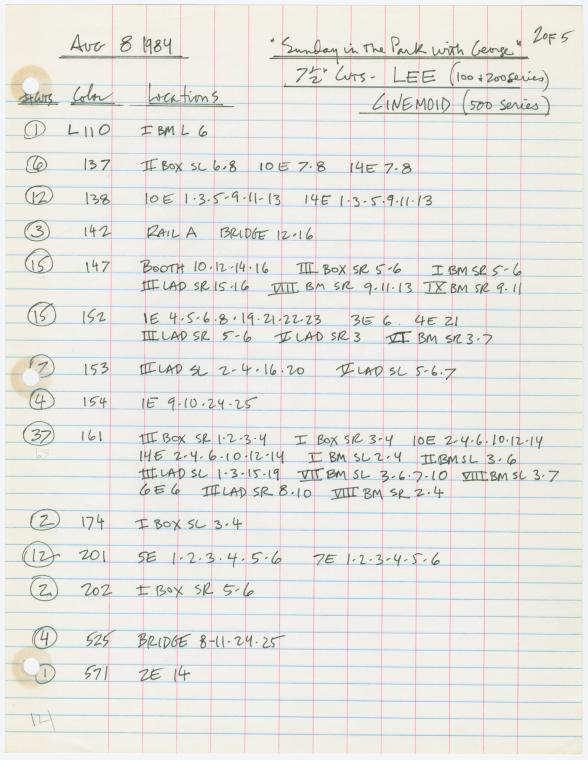 AUG 8 1984 "Sunday in the Park with George" 2 of 5
7½" Cuts - LEE (100 & 200 series)
# Cuts Color Locations CINEMOID (500 series)
1 L110 I BM L 6
6 137 II BOX SL 6·8 10E 7·8 14E 7·8
12 138 10E 1·3·5·9·11·13 14E 1·3·5·9·11·13
3 142 RAIL A BRIDGE 12·16
15 147 BOOTH 10·12·14·16 III BOX SR 5-6 I BM SR 5-6
III LAD SR 15·16 VIII BM SR 9·11·13 IX BM SR 9·11
15 152 1E 4·5·6·8·19·21·22·23 3E 6 4E 21
III LAD SR 5-6 V LAD SR 3 VI BM SR 3·7
7 153 III LAD SL 2·4·16·20 V LAD SL 5·6·7
4 154 1E 9·10·24·25
37 161 III BOX SR 1·2·3·4 I BOX SR 3·4 10E 2·4·6·10·12·14
14E 2·4·6·10·12·14 I BM SL 2·4 II BM SL 3·6
III LAD SL 1·3·15·19 VII BM SL 3·6·7·10 VIII BM SL 3·7
6E 6 III LAD SR 8·10 VIII BM SR 2·4
2 174 I BOX SL 3·4
12 201 5E 1·2·3·4·5·6 7E 1·2·3·4·5·6
2 202 I BOX SR 5-6
4 525 BRIDGE 8-11·24·25
1 571 2E 14
121